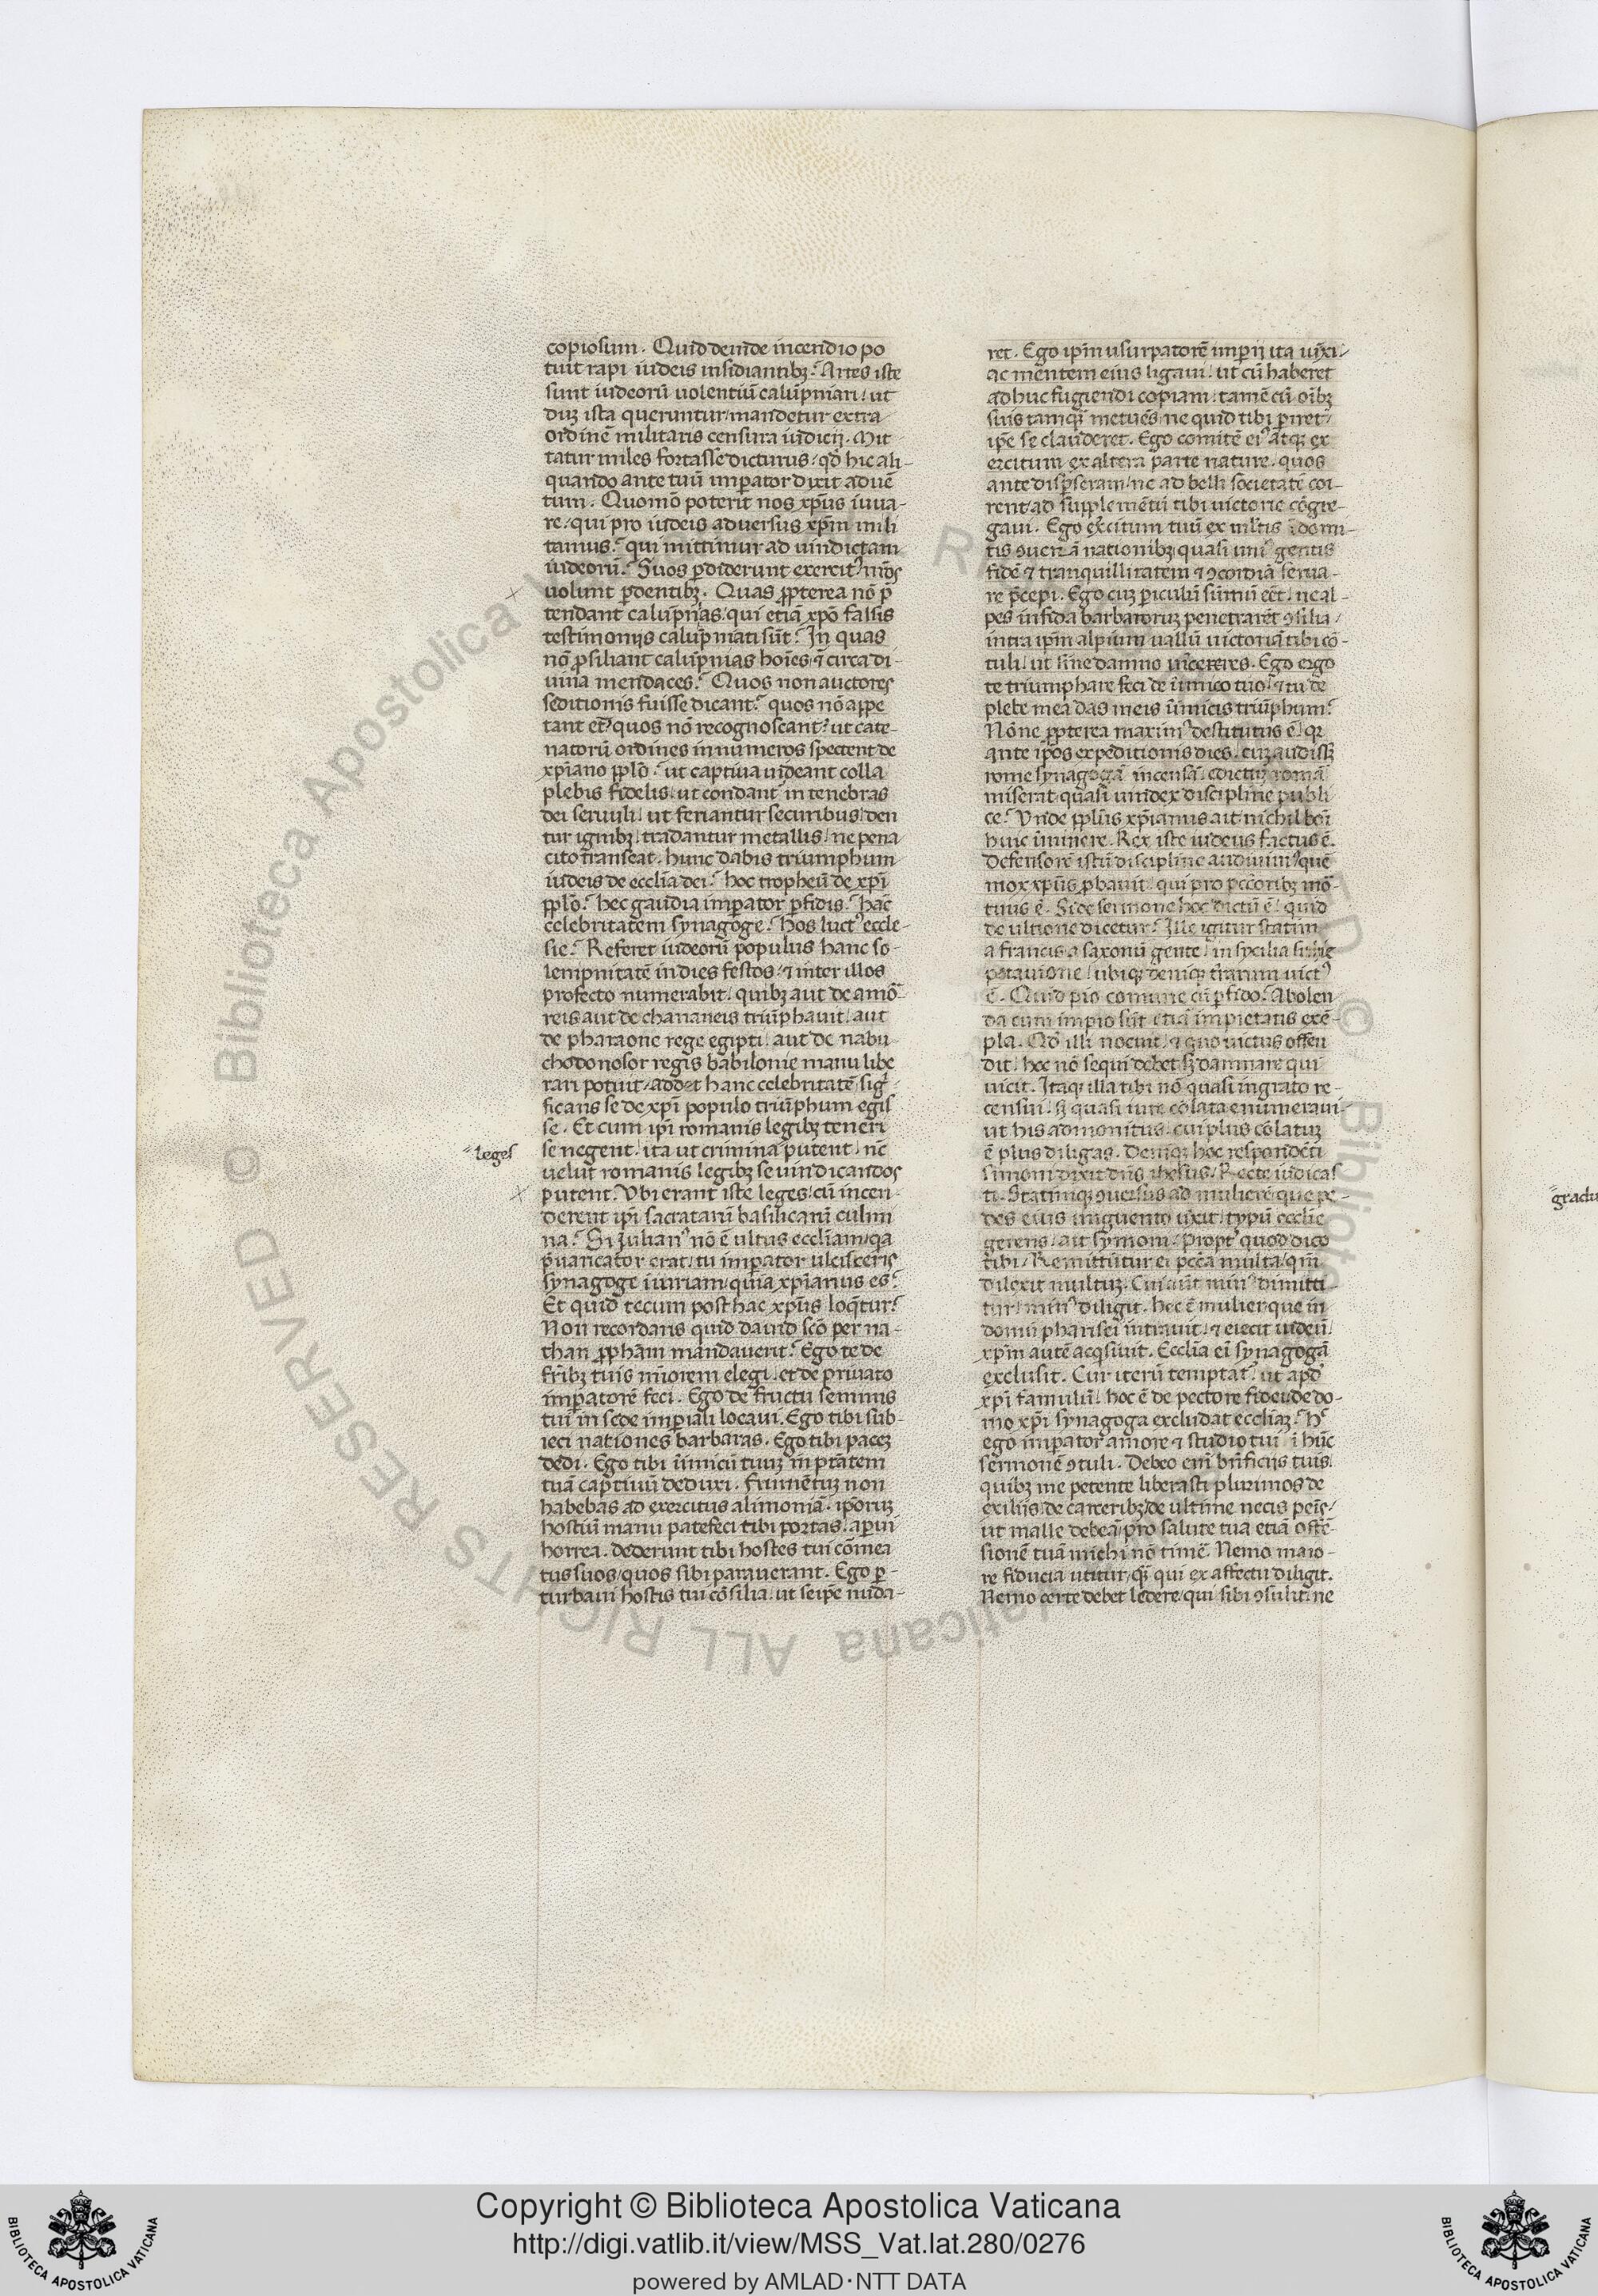 copiosum. Quid deinde incendio po
tuit rapi iudeis insidiantibꝫ? Artes iste
sunt iudeorū uolentiū calūpniari / ut
duꝫ ista queruntur / mandetur extra
ordinē militaris censura iudicij. Mit-
tatur miles fortasse dicturus / qd̄ hic ali-
quando ante tuū imꝑator dixit aduē
tum. Quomō poterit nos xp̄us iuua-
re / qui pro iudeis aduersus xp̄m mili
tamus? qui mittimur ad uindictam
iudeorū? Suos ꝑdiderunt exercitꝰ / nr̄os
uolunt ꝑdentibꝫ. Quas ꝓpterea nō p̄
tendant calūpnias / qui etiā xp̄o falsis
testimonijs calūpniati sūt? In quas
nō ꝓsiliant calūpnias hoīes / ī circa di-
uina mendaces? Quos non auctores
seditionis fuisse dicant? quos nō appe
tant et̄ / quos nō recognoscant? ut cate-
natorū ordines innumeros spectent de
xp̄iano pplō? ut captiua uideant colla
plebis fidelis / ut condant in tenebras
dei seruuli / ut feriantur securibus / den
tur ignibꝫ / tradantur metallis / ne pena
cito transeat. hunc dabis triumphum
iudeis de ecclīa dei? hoc tropheū de xp̄i
pplō? hec gaudia imꝑator ꝑfidis? hāc
celebritatem synagoge? hos luctꝰ eccle-
sie? Referet iudeorū populus hanc so-
lempnitatē in dies festos / ⁊ inter illos
profecto numerabit / quibꝫ aut de amō-
reis aut de chananeis triūphauit / aut
de pharaone rege egipti / aut de nabu-
chodonosor regis babilonie manu libe
rari potuit / addet hanc celebritatē / sig̅
ficans se de xp̄i populo triūphum egis
se. Et cum ip̄i romanis legibꝫ teneri
se negent / ita ut crimina putent / nc̄
uelut romanis legibꝫ se uindicandos
= leges
putent. Vbi erant iste leges / cū incen-
derent ip̄i sacratarū basilicarū culmi
na? Si Julianꝰ nō ē ultus ecclīam / qa
p̄uaricator erat / tu imꝑator ulcisceris
synagoge iuriam / quia xp̄ianus es?
Et quid tecum post hac xp̄us loq̄tur?
Non recordaris quid dauid scō per na-
than ꝓpham mandauerit? Ego te de
fr̄ibꝫ tuis miorem elegi / et de priuato
imꝑatorē feci. Ego de fructu seminis
tui in sede imꝑiali locaui. Ego tibi sub-
ieci nationes barbaras. Ego tibi paceꝫ
dedi. Ego tibi īimicū tuuꝫ in ptātem
tuā captiuū deduxi. Frumētuꝫ non
habebas ad exercitus alimoniā. ip̄oruꝫ
hostiū manu patefeci tibi portas / aperui
horrea. dederunt tibi hostes tui cōmea
tus suos / quos sibi parauerant. Ego ꝑ-
turbaui hostis tui cōsilia / ut seip̄e nuda-
ret. Ego ip̄m usurpatorē imperij ita uīxi /
ac mentem eius ligaui / ut cū haberet
adhuc fugiendi copiam / tamē cū oībꝫ
suis tamqꝫ metuēs / ne quid tibi ꝑiret /
ip̄e se clauderet. Ego comitē eiꝰ atqꝫ ex
ercitum ex altera parte nature / quos
ante disꝑseram / ne ad belli societatē coi-
rent / ad supplemētū tibi uictorie cōgre-
gaui. Ego exercitum tuū ex multis īdomi-
tis ꝯuenā nationibꝫ quasi uniꝰ gentis
fidē ⁊ tranquillitatem ⁊ ꝯcordiā serua-
re p̄cepi. Ego cuꝫ ꝑiculū sūmū eēt / ne al-
pes infida barbaroruꝫ penetrarēt ꝯsilia /
intra ip̄m alpium uallū uictoriā tibi cō-
tuli / ut sine damno uīcereres. Ego ergo
te triumphare feci de īimico tuo / ⁊ tu de
plebe mea das meis īimicis triūphum?
Nōne ꝓpterea maximꝰ destitutus ē / qꝛ
ante ip̄os expeditionis dies / cuꝫ audissꝫ
rome synagogā incensā / edictuꝫ romā
miserat / quasi uindex discipline publi
ce? Vnde pplūs xp̄ianus ait / nichil boī
huic īminere. Rex iste iudeus factus ē.
Defensorē istū discipline audiuimꝰ / quē
mox xp̄us ꝓbauit / qui pro pccōribꝫ mō-
tuus ē. Si de sermone hoc dictū ē / quid
de ultione dicetur? Ille igitur statim
a francis a saxonū gente / in sycilia siscie
petauione / ubiqꝫ deniqꝫ trāum uictꝰ
ē. Quid pio comune cū ꝑfido? Abolen
da cum impio sūt etiā impietatis exē-
pla. Qd̄ illi nocuit / ⁊ quo uictus offen
dit / hoc nō sequi debet sꝫ dannare qui
uicit. Itaqꝫ illa tibi nō quasi ingrato re-
censui / sꝫ quasi iure cōlata enumeraui
ut his admonitus / cui plus cōlatuꝫ
ē plus diligas. Deniqꝫ hoc respondēti
simoni dixit dn̄s ihesus / Recte iudicas
ti. Statimqꝫ ꝯuersus ad mulierē / que pe-
des eius unguento ūxit / typū ecclīe
gerens / ait symoni. Proptꝰ quod dico
tibi / Remittūtur ei pccā multa / qm̄
dilexit multuꝫ. Cui aūt minꝰ dimitti
tur / minꝰ diligit. Hec ē mulier que in
domū pharisei intrauit / ⁊ eiecit iudeū /
xp̄m autē acq̄siuit. Ecclīa eī synagogā
exclusit. Cur iterū temptat̄ / ut apd̄
xp̄i famulū / hoc ē de pectore fidei / de do-
mo xp̄i synagoga excludat ecclīaꝫ? Hᵉ
ego imperator amore ⁊ studio tui ī hūc
sermonē ꝯtuli. Debeo enī bn̄ficijs tuis /
quibꝫ me petente liberasti plurimos de
exilijs / de carceribꝫ / de ultime necis penis /
ut malle debeā / pro salute tua etiā offē-
sionē tuā michi nō timē. Nemo maio-
re fiducia utitur / qꝫ qui ex affectu diligit.
Nemo certe debet ledere / qui sibi ꝯsulit / ne
= gradu
Copyright © Biblioteca Apostolica Vaticana
http://digi.vatlib.it/view/MSS_Vat.lat.280/0276
powered by AMLAD·NTT DATA
BIBLIOTECA APOSTOLICA VATICANA
BIBLIOTECA APOSTOLICA VATICANA